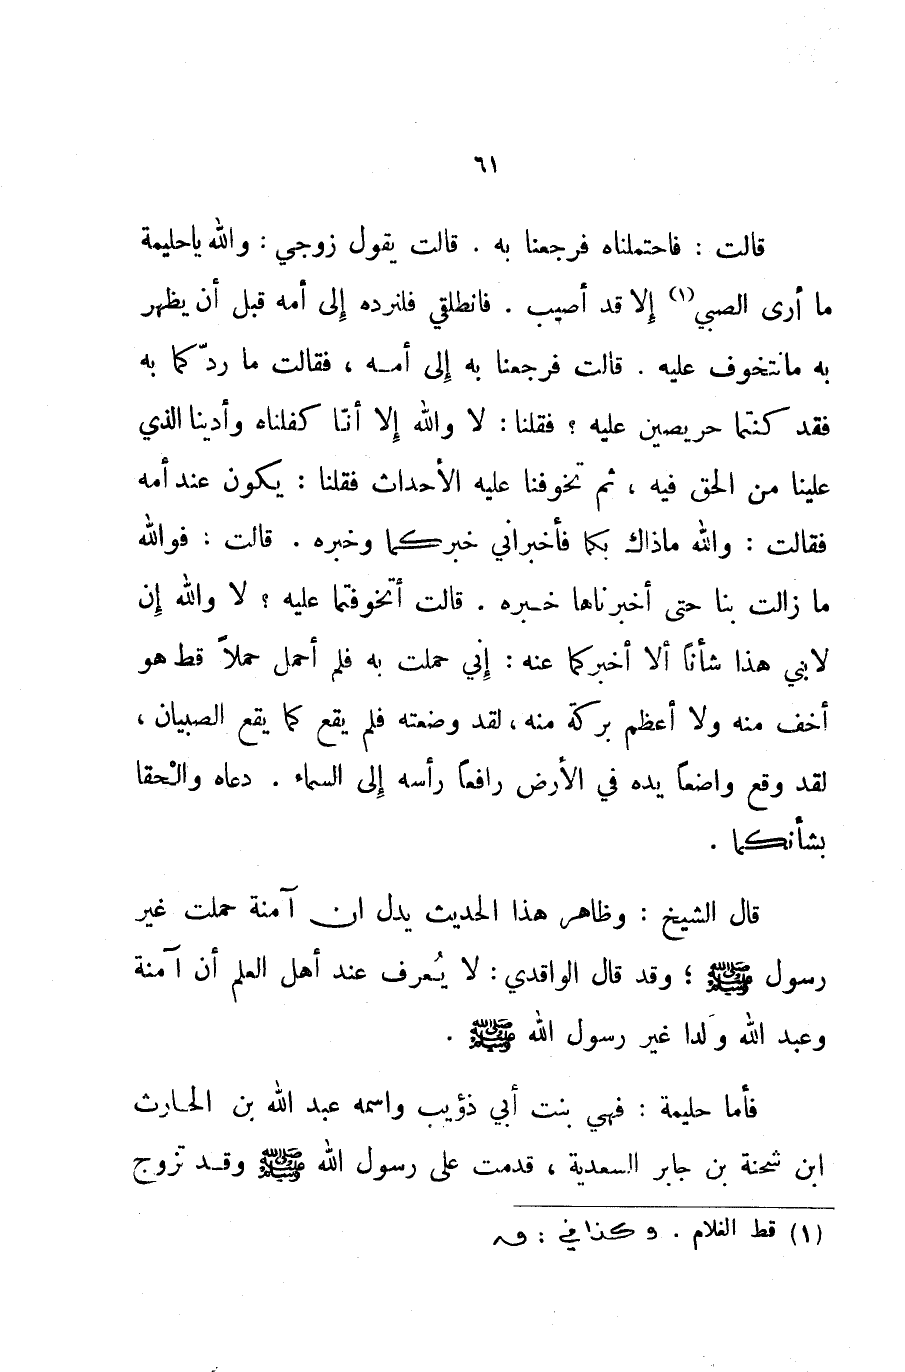 ٦١
قالت : فاحتملناه فرجعنا به . قالت يقول زوجي : والله ياحليمة
ما أرى الصبي(١) إلا قد أصيب . فانطلقي فلنرده إلى أمه قبل أن يظهر
به مانتخوف عليه . قالت فرجعنا به إلى أمـه ، فقالت ما ردّكما به
فقد كنتما حريصين عليه ؟ فقلنا : لا والله إلا أنّا كفلناه وأدينا الذي
علينا من الحق فيه ، ثم تخوفنا عليه الأحداث فقلنا : يكون عند أمه
فقالت : والله ماذاك بكما فأخبراني خبركما وخبره . قالت : فوالله
ما زالت بنا حتى أخبرناها خـبره . قالت أتخوفتما عليه ؟ لا والله إن
لابني هذا شأناً ألا أخبركما عنه : إني حملت به فلم أحمل حملاً قط هو
أخف منه ولا أعظم بركة منه ، لقد وضعته فلم يقع كما يقع الصبيان ،
لقد وقع واضعاً يده في الأرض رافعاً رأسه إلى السماء . دعاه والْحقا
بشأنكما .
قال الشيخ : وظاهر هذا الحديث يدل ان آمنة حملت غير
رسول ﷺ ؛ وقد قال الواقدي : لا يُعرف عند أهل العلم أن آمنة
وعبد الله وَلدا غير رسول الله ﷺ .
فأما حليمة : فهي بنت أبي ذؤيب واسمه عبد الله بن الحـارث
ابن شحنة بن جابر السعدية ، قدمت على رسول الله ﷺ وقـد تزوج
(١) قط الغلام . وكذا في : و‍ه